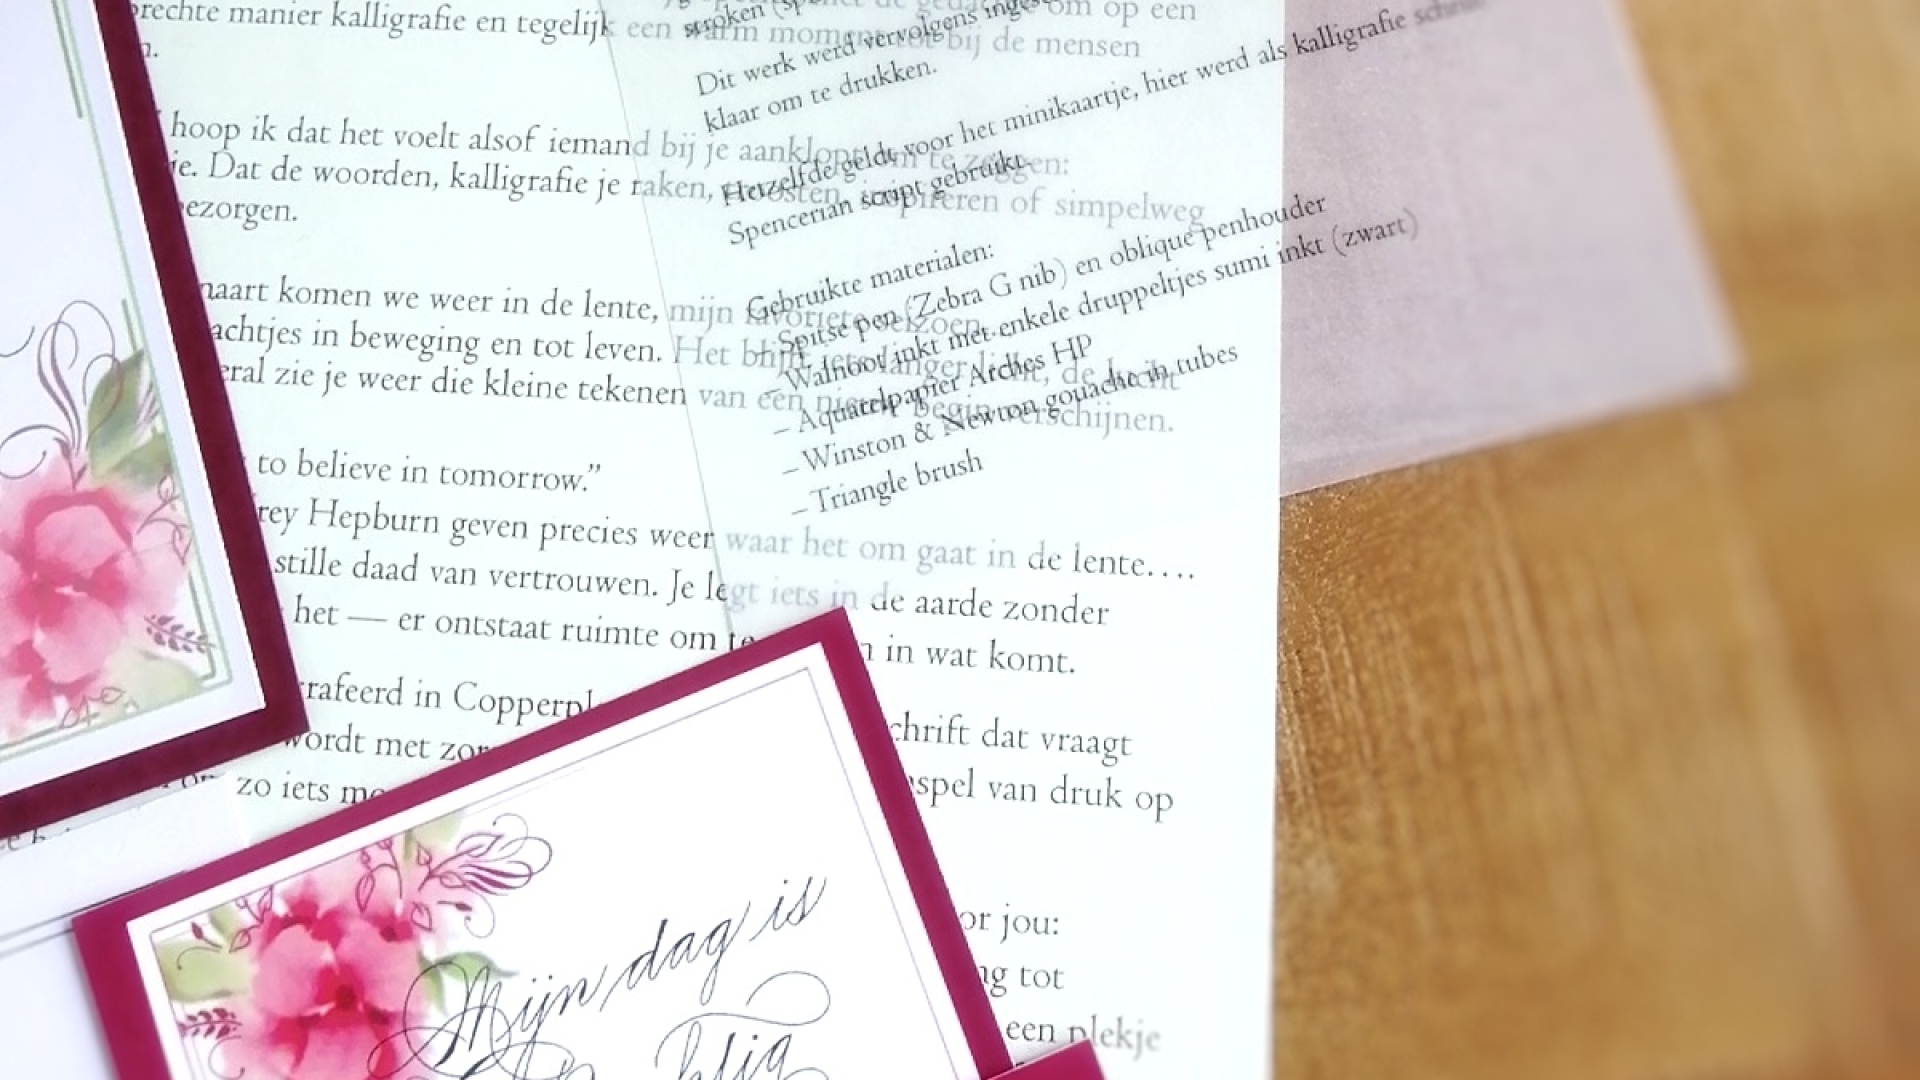 rechte manier kalligrafie en tegelijk een warm moment tot bij de mensen
n.
hoop ik dat het voelt alsof iemand bij je aanklopt om te zeggen:
ie. Dat de woorden, kalligrafie je raken, troosten, inspireren of simpelweg
ezorgen.
naart komen we weer in de lente, mijn favoriete seizoen.
achtjes in beweging en tot leven. Het blijft iets langer licht, de lucht
eral zie je weer die kleine tekenen van een nieuw begin verschijnen.
to believe in tomorrow.”
rey Hepburn geven precies weer waar het om gaat in de lente….
stille daad van vertrouwen. Je legt iets in de aarde zonder
het — er ontstaat ruimte om te
n in wat komt.
rafeerd in Copperpl
chrift dat vraagt
wordt met zor
nspel van druk op
zo iets mo
or jou:
ng tot
een plekje
stroken
om op een
Dit werk werd vervolgens inges
klaar om te drukken.
Hetzelfde geldt voor het minikaartje, hier werd als kalligrafie
Spencerian script gebruikt.
Gebruikte materialen:
– Spitse pen (Zebra G nib) en oblique penhouder
– Walnoot inkt met enkele druppeltjes sumi inkt (zwart)
– Aquarelpapier Arches HP
– Winston & Newton gouache in tubes
– Triangle brush
Mijn dag is